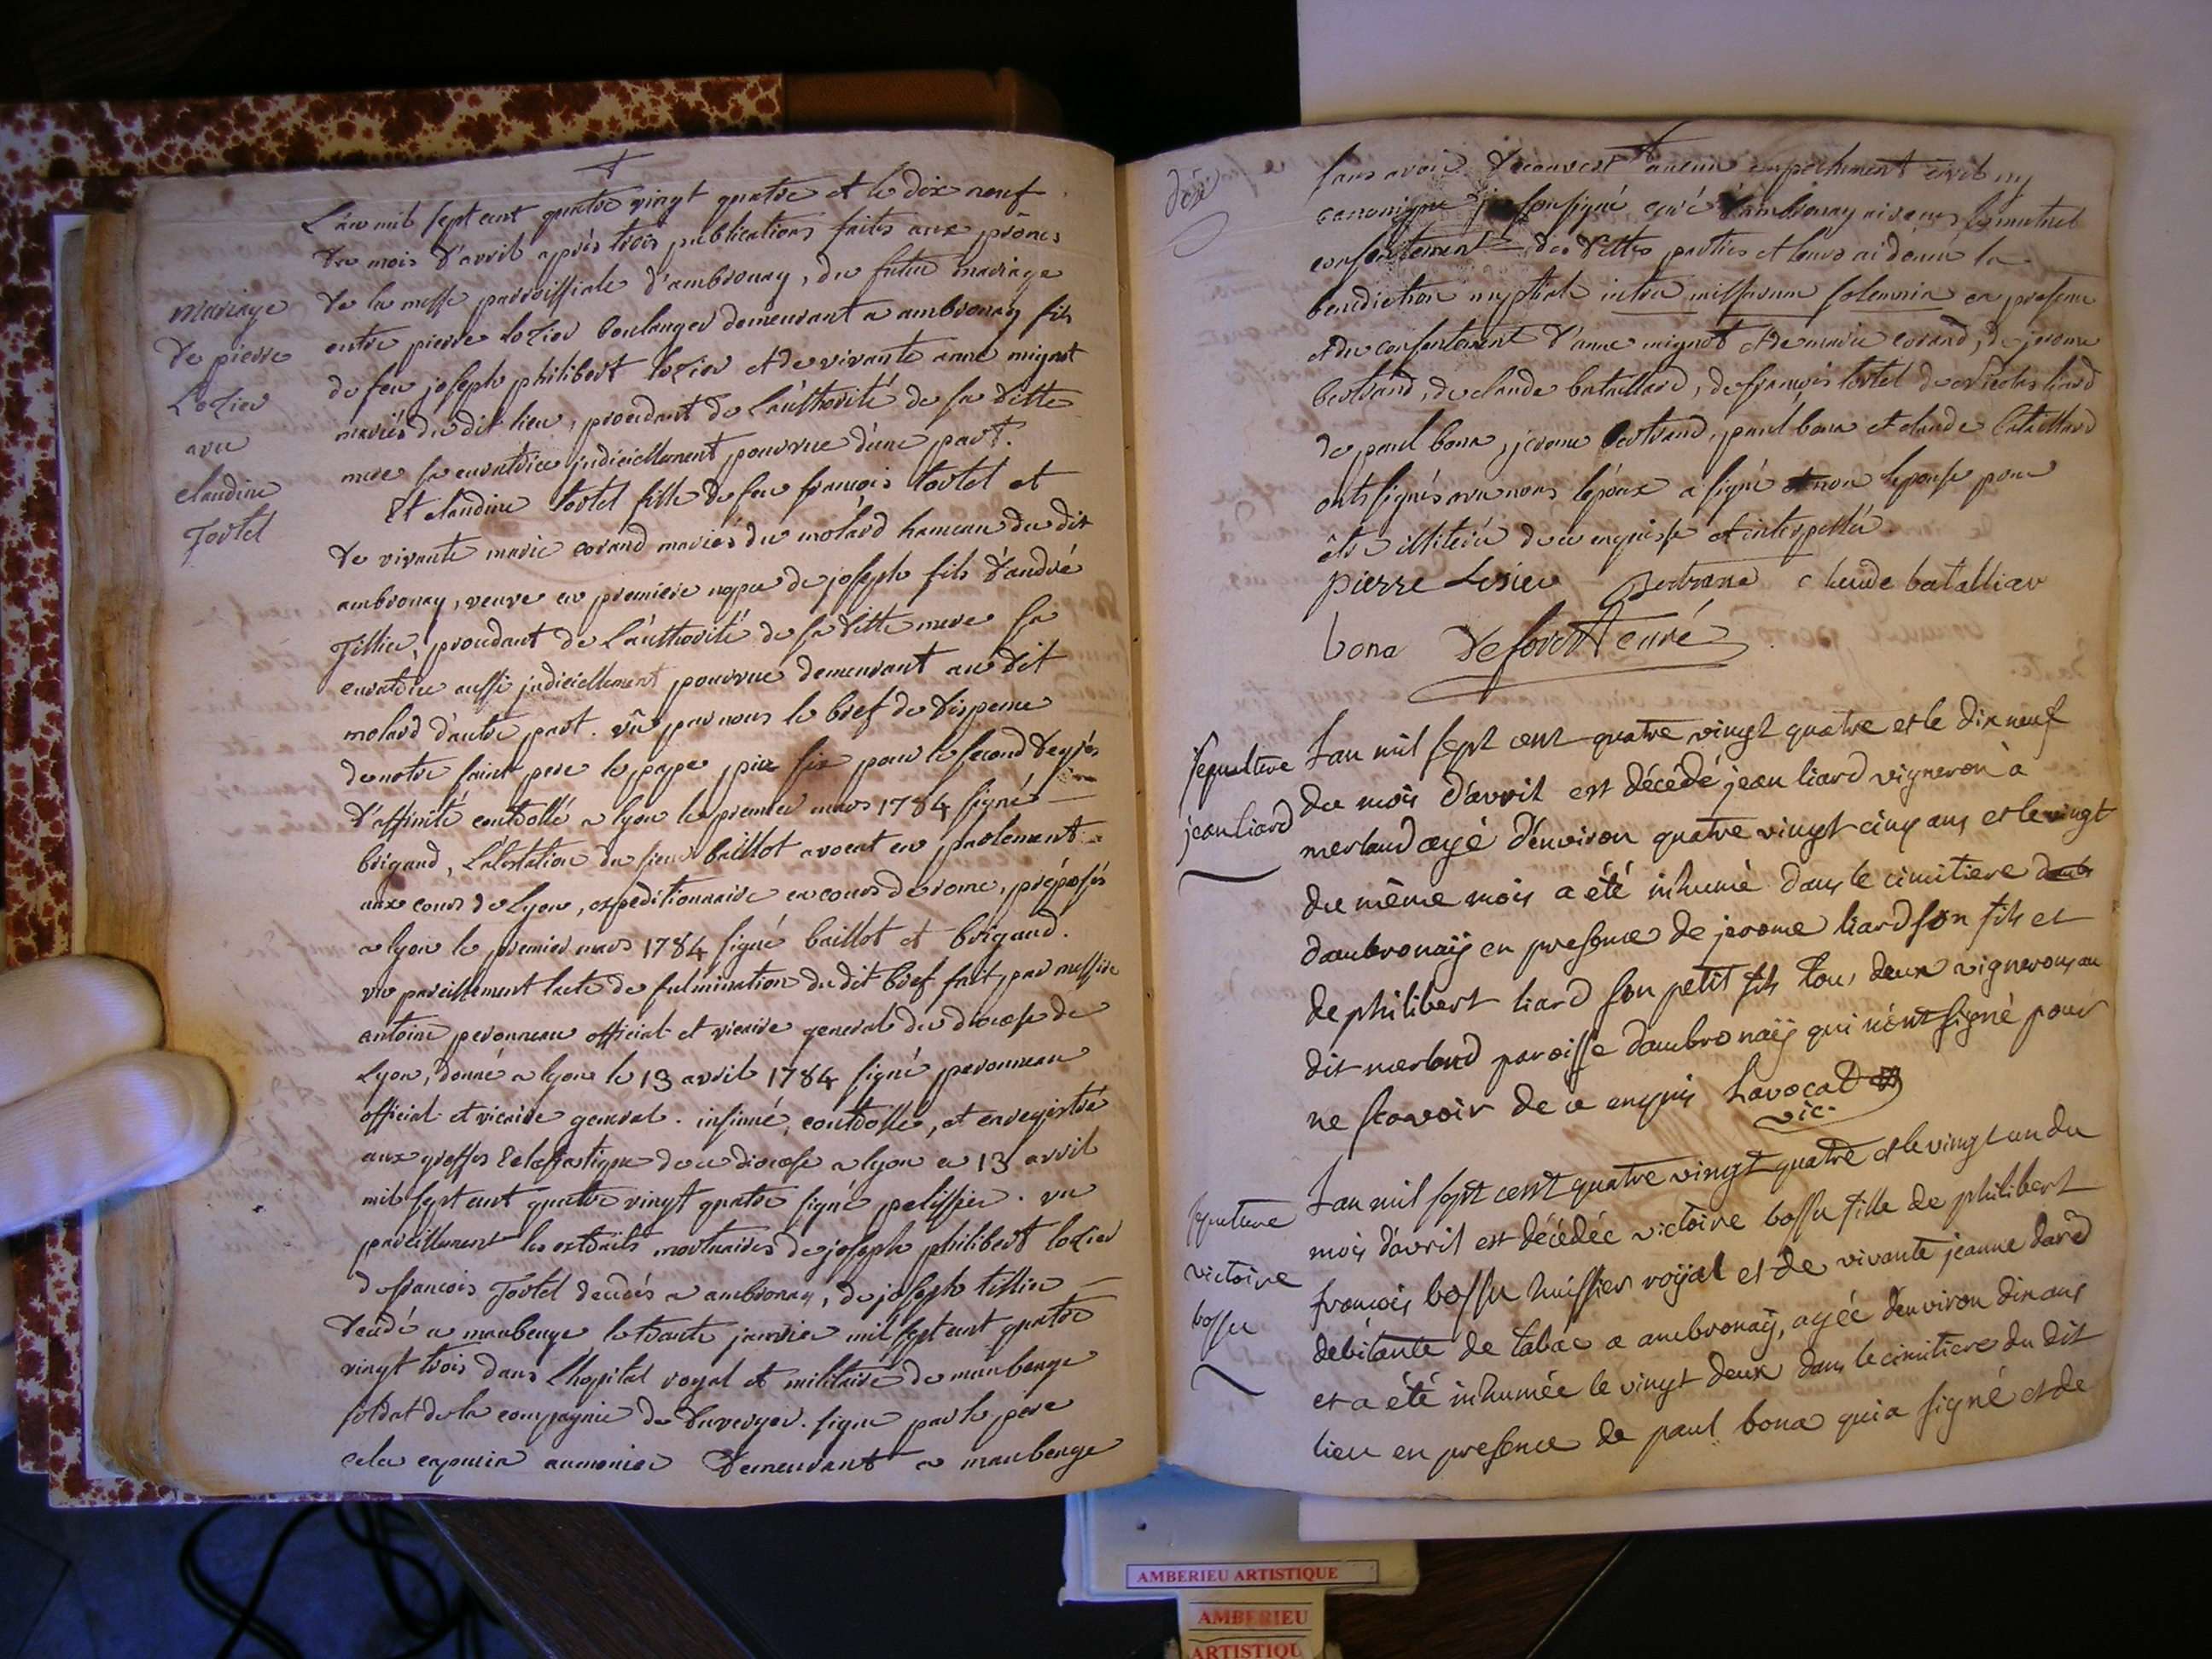 mariage
de pierre
Lozier
avec
claudine
Tortel
L'an mil sept cent quatre vingt quatre et le dix neuf
du mois d'avril après trois publications faites aux prônes
de la messe parroissiale d'ambronay, du futur mariage
entre pierre lozier boulanger demeurant a ambronay fils
de feu joseph philibert lozier et de vivante anne mignot
mariés du dit lieu, procedant de l'authorité de sa ditte
mere sa curatrice judiciellement pourvue d'une part.
Et claudine tortel fille de feu francois tortel et
de vivante marie corand mariés du molard hameau du dit
ambronay, veuve en premiere nopce de joseph fils d'andré
Tillier, procedant de l'authorité de sa ditte mere sa
curatrice aussi judiciellement pourvue demeurant au dit
molard d'autre part. vû par nous le bref de dispense
de notre saint pere le pape pie six pour le second degrés
d'affinité controllé a lyon le premier mars 1784 signé
brigand, l'attestation du sieur baillot avocat en parlement
aux cours de Lyon, expeditionnaire en cours de rome, préposés
a lyon le premier mars 1784 signé baillot et brigand.
vu pareillement l'acte de fulmination du dit bref fait par messire
antoine peronneau official et vicaire general du diocese de
Lyon, donné a lyon le 13 avril 1784 signé peronneau
official et vicaire general. insinué, controllé, et enregistré
aux greffes Eclesiastique de ce diocese a lyon ce 13 avril
mil sept cent quatre vingt quatre signé pelissier. vu
pareillement les extraits mortuaires de joseph philibert lozier
de francois Tortel decedés a ambronay, de joseph tillier
decedé a maubeuge le trente janvier mil sept cent quatre
vingt trois dans l'hopital royal et militaire de maubeuge
soldat de la compagnie de Duverger. signé par le pere
capucin aumonier demeurant a maubeuge
sans avoir decouvert aucun empechement civil ny
canonique je soussigné curé d'ambronay ai reçu le mutuel
consentement des dittes parties et leurs ai donné la
benediction nuptiale intra missarum solemnia en presence
et du consentement d'anne mignot et de marie corand, de jerome
bertrand, de claude bataillard, de françois tortel de nicolas liard
de paul bona, jerome bertrand, paul bona et claude bataillard
onts signés avec nous l'époux a signé et non l'epouse pour
être illiterée de ce enquise et interpellée.
pierre Losier Bertrand claude batalliar
bona Deforest curé
sepulture
jean liard
L'an mil sept cent quatre vingt quatre et le dix neuf
du mois d'avril est décédé jean liard vigneron à
merland agé d'environ quatre vingt cinq ans et le vingt
du même mois a été inhumé dans le cimitiere
d'ambronaÿ en presence de jerome liard son fils et
de philibert liard son petit fils tous deux vignerons au
dit merland paroisse d'ambronaÿ qui n'ont signé pour
ne scavoir de ce enquis Lavocat
vic.
sepulture
victoire
bossu
L'an mil sept cent quatre vingt quatre et le vingt un du
mois d'avril est décédée victoire bossu fille de philibert
françois bossu huissier roÿal et de vivante jeanne dard
debitante de tabac a ambronaÿ, agée d'environ dix ans
et a été inhumée le vingt deux dans le cimitiere du dit
lieu en presence de paul bona qui a signé et de
AMBERIEU ARTISTIQUE
AMBERIEU
ARTISTIQU